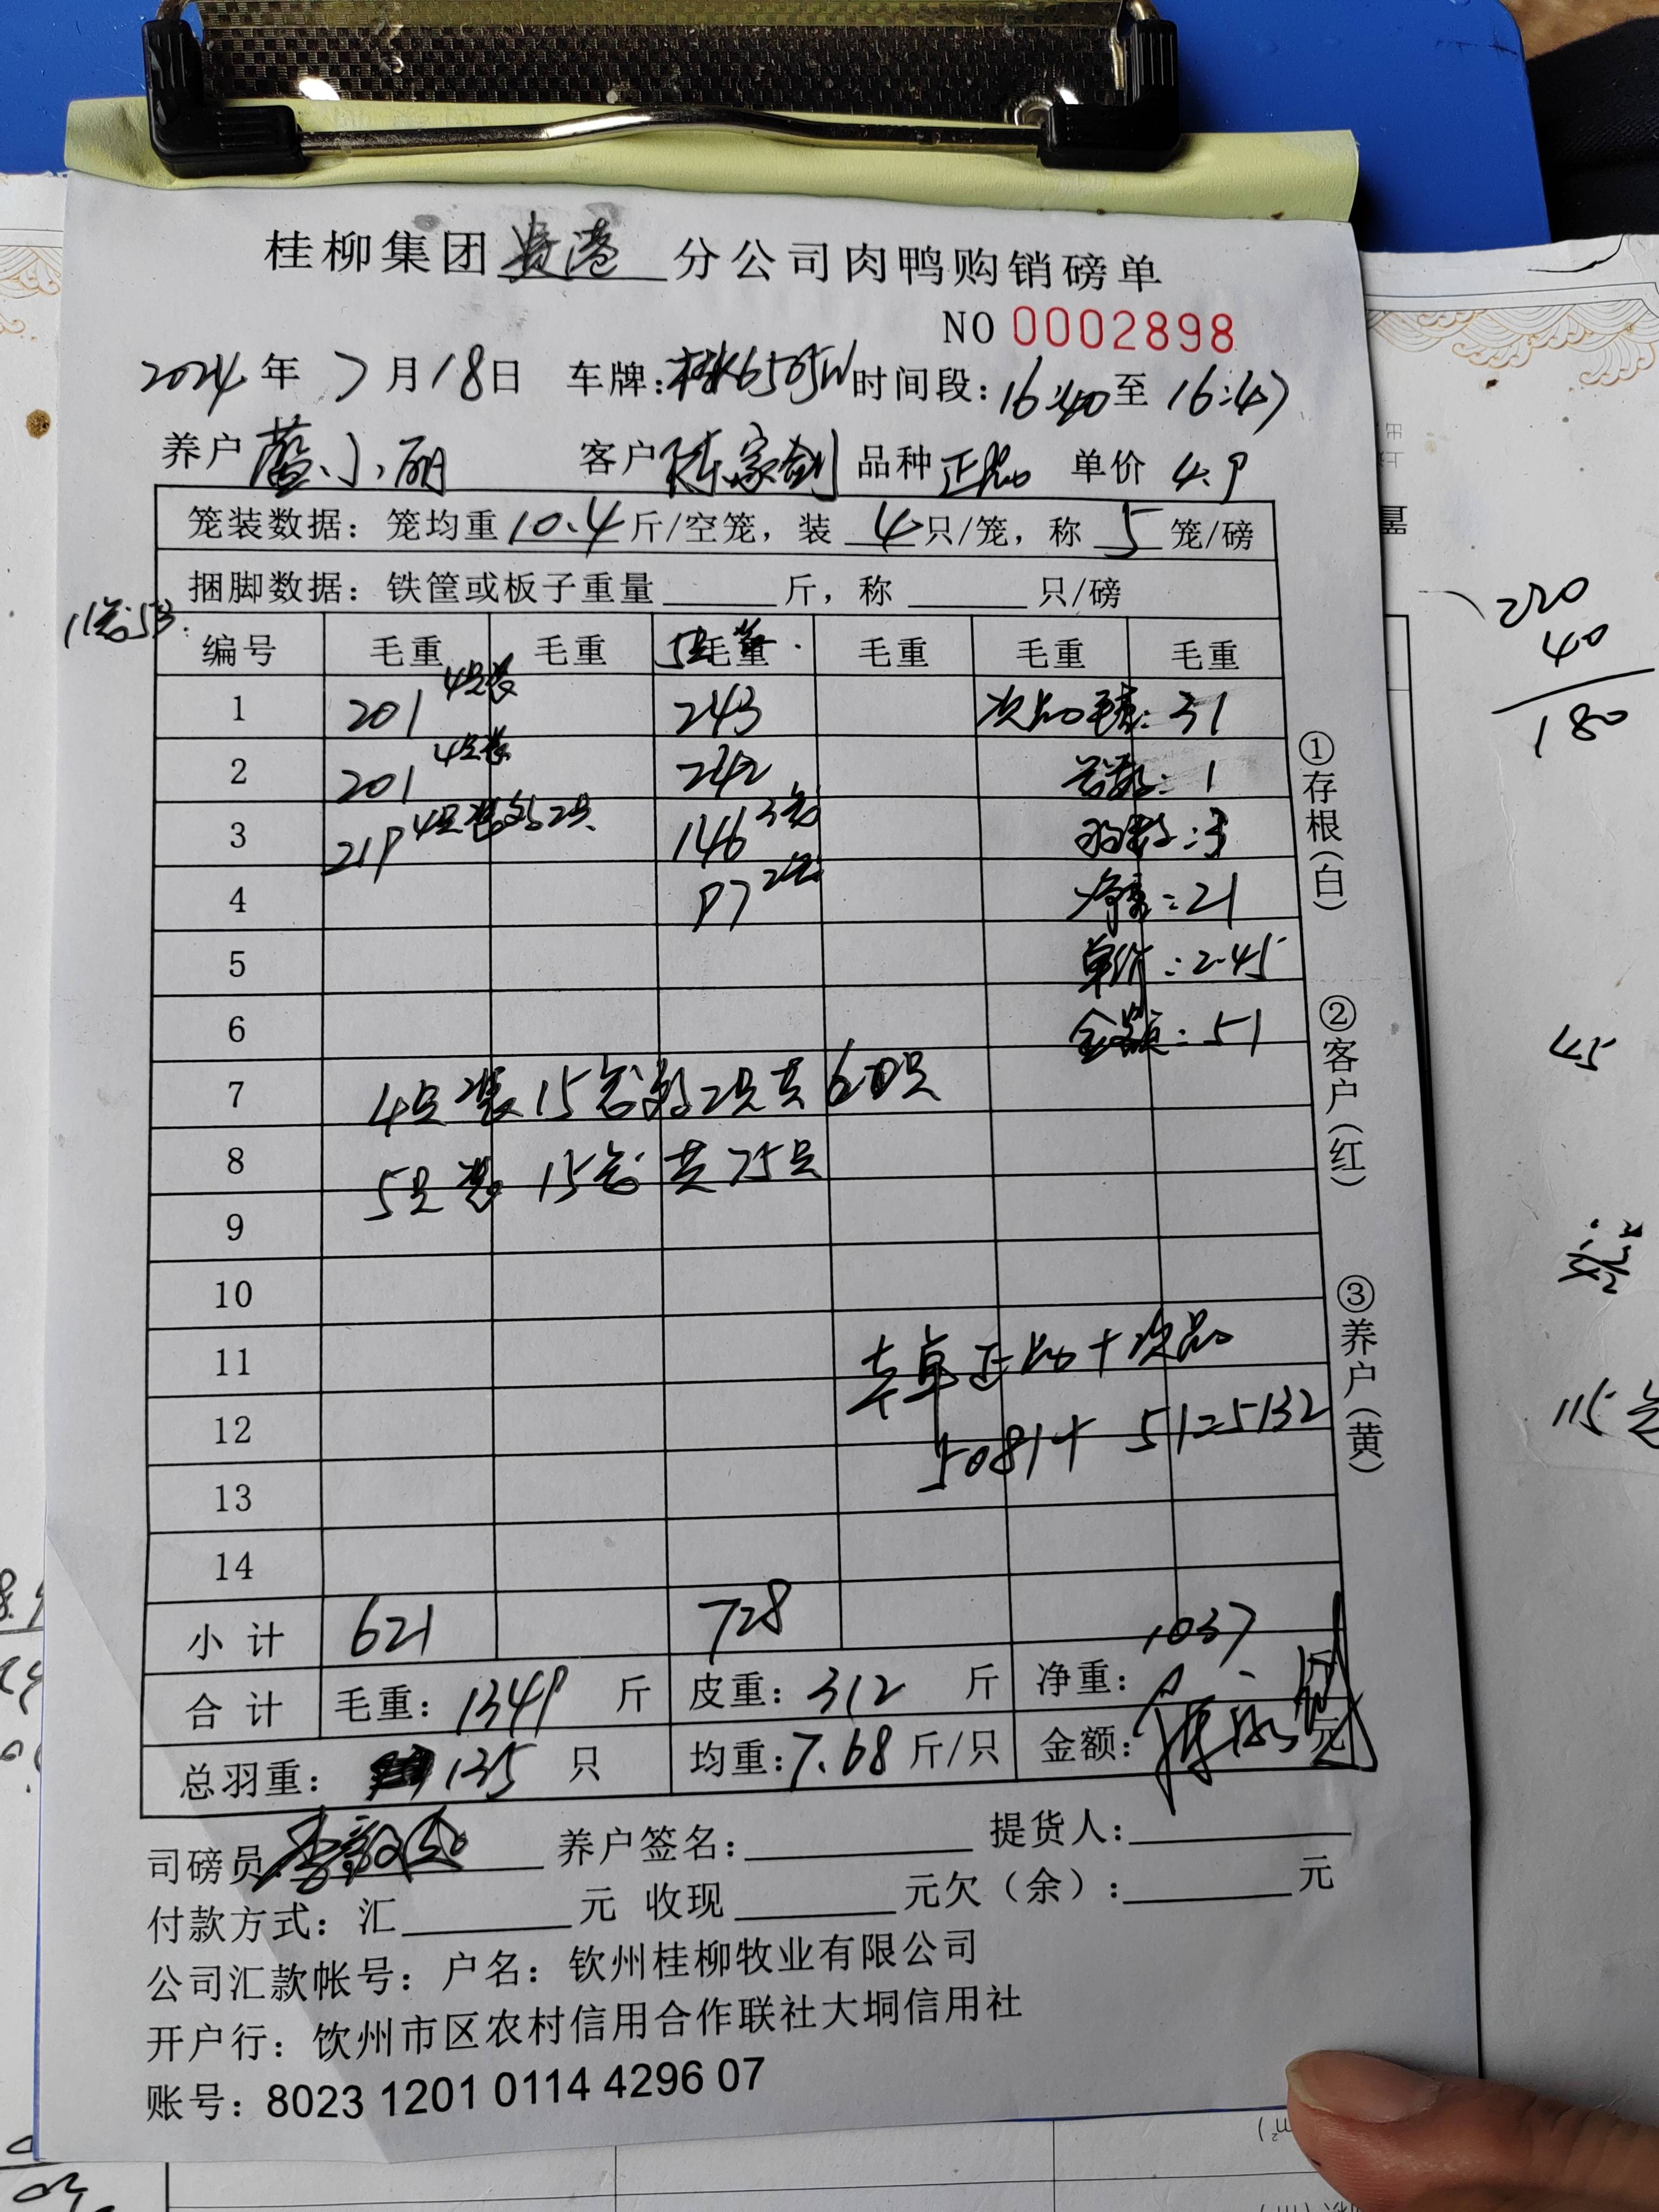 桂柳集团贵港分公司肉鸭购销磅单
NO 0002898
2024年7月18日 车牌:桂K6505W 时间段:16:40至16:47
养户 蓝小丽 客户 陈家剑 品种 正品 单价 4.9
笼装数据: 笼均重10.4斤/空笼, 装 4只/笼, 称 5 笼/磅
捆脚数据: 铁筐或板子重量 斤, 称 只/磅
编号 毛重 毛重 5只装毛重 毛重 毛重 毛重
1 201 4只装 243 次品毛重: 31
2 201 4只装 242 笼数: 1
3 219 4只装 2只 146 3笼 羽数: 3
4 97 2笼 净重: 21
5 单价: 2.45
6 金额: 51
7 4只装 15笼 2只共60只
8 5只装 15笼 共75只
9
10
11 本单正品+次品
12 5081+51=5132
13
14
小计 621 728
合计 毛重: 1349 斤 皮重: 312 斤 净重: 1037
总羽重: 135 只 均重: 7.68 斤/只 金额: 元
司磅员: 养户签名: 提货人:
付款方式: 汇 元 收现 元欠(余): 元
公司汇款帐号: 户名: 钦州桂柳牧业有限公司
开户行: 钦州市区农村信用合作联社大垌信用社
账号: 8023 1201 0114 4296 07
①存根(白)
②客户(红)
③养户(黄)
220
40
180
45
115